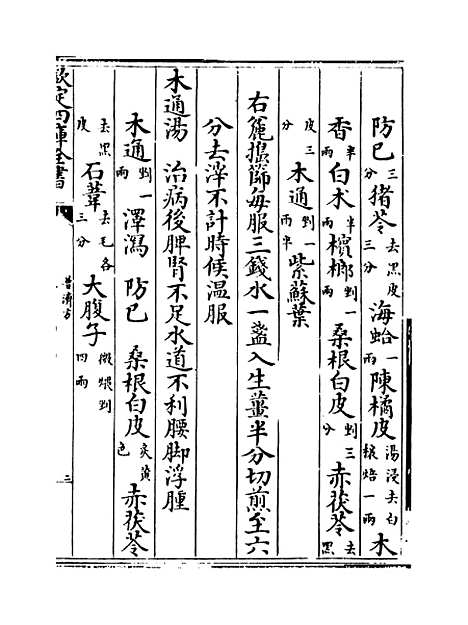 防巳三分 猪苓去黑皮三分 海蛤一兩 陳橘皮湯浸去白穰焙一兩 木
香半兩 白术半兩 檳榔剉一兩 桑根白皮剉三分 赤茯苓去黑
皮三分 木通剉一兩半 紫蘇葉
右麄擣篩每服三錢水一盞入生薑半分切煎至六
分去滓不計時候温服
木通湯 治病後脾腎不足水道不利腰脚浮腫
木通剉一兩 澤瀉 防巳 桑根白皮炙黄色 赤茯苓
去黑皮 石葦去毛各三分 大腹子微煨剉四兩
欽定四庫全書 普濟方 三